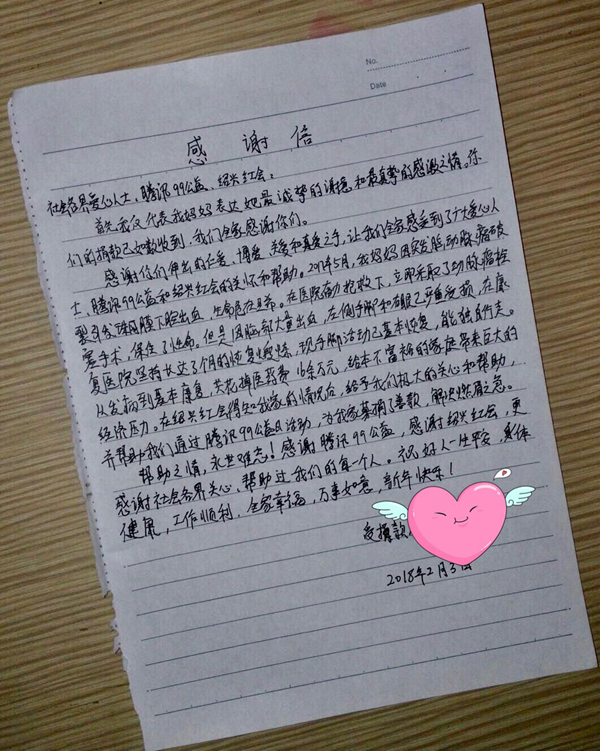 No.
Date
感 谢 信
社会各界爱心人士，腾讯99公益、绍兴红会：
首先我仅代表我妈妈表达她最诚挚的谢意和最真挚的感激之情。你
们的捐款已如数收到，我们全家感谢你们。
感谢你们伸出的仁爱、博爱、关爱和真爱之手，让我们全家感受到了广大爱心人
士、腾讯99公益和绍兴红会的关怀和帮助。2017年5月，我妈妈因突发脑动脉瘤破
裂引发蛛网膜下腔出血，生命危在旦夕。在医院奋力抢救下，立即采取了动脉瘤栓
塞手术，保住了性命。但是因脑部大量出血，左侧手脚和右眼已严重受损，在康
复医院坚持长达7个月的恢复锻炼，现手脚活动已基本恢复，能独自行走。
从发病到基本康复，共花掉医药费 余万元，给本不富裕的家庭带来巨大的
经济压力。在绍兴红会得知我家的情况后，给予我们极大的关心和帮助，
并帮助我们通过腾讯99公益日活动，为我家募捐善款，解决燃眉之急。
帮助之情，永世难忘！感谢腾讯99公益，感谢绍兴红会，更
感谢社会各界关心、帮助过我们的每一个人。祝好人一生平安，身体
健康，工作顺利，全家幸福，万事如意，新年快乐！
受捐款
2018年2月3日